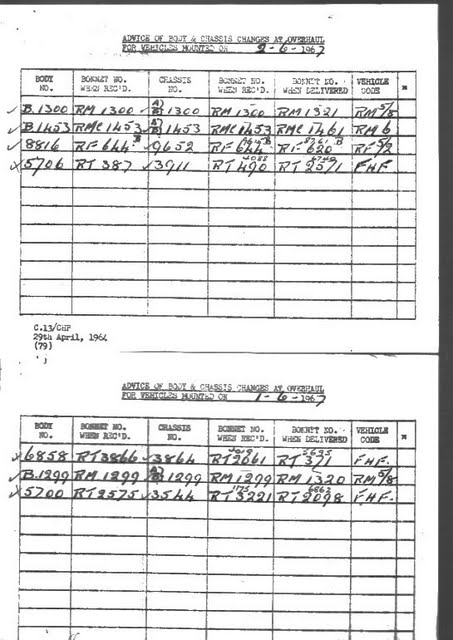 ADVICE OF BODY & CHASSIS CHANGES AT OVERHAUL
FOR VEHICLES MOUNTED ON 2-6-1967
BODY NO. BONNET NO. WHEN REC'D. CHASSIS NO. BONNET NO. WHEN REC'D. BONNET NO. WHEN DELIVERED VEHICLE CODE
✓ B.1300 RM 1300 ✓ 1300 RM 1300 RM 1321 RM 5/8
✓ B.1453 RMC 1453 ✓ 1453 RMC 1453 RMC 1461 RM 6
✓ 8816 RF 644 ✓ 9652 RF 644 RF 620 RF 5/2
5706 RT 387 ✓ 3911 RT 490 RT 2571 FHF
C.13/CHP
29th April, 1964
(79)
ADVICE OF BODY & CHASSIS CHANGES AT OVERHAUL
FOR VEHICLES MOUNTED ON 1-6-1967
BODY NO. BONNET NO. WHEN REC'D. CHASSIS NO. BONNET NO. WHEN REC'D. BONNET NO. WHEN DELIVERED VEHICLE CODE
6858 RT3866 ✓ 3864 RT2661 RT 371 FHF.
✓ B.1299 RM 1299 ✓ 1299 RM 1299 RM 1320 RM 5/8
5700 RT 2575 ✓ 3544 RT 3221 RT 2098 FHF.